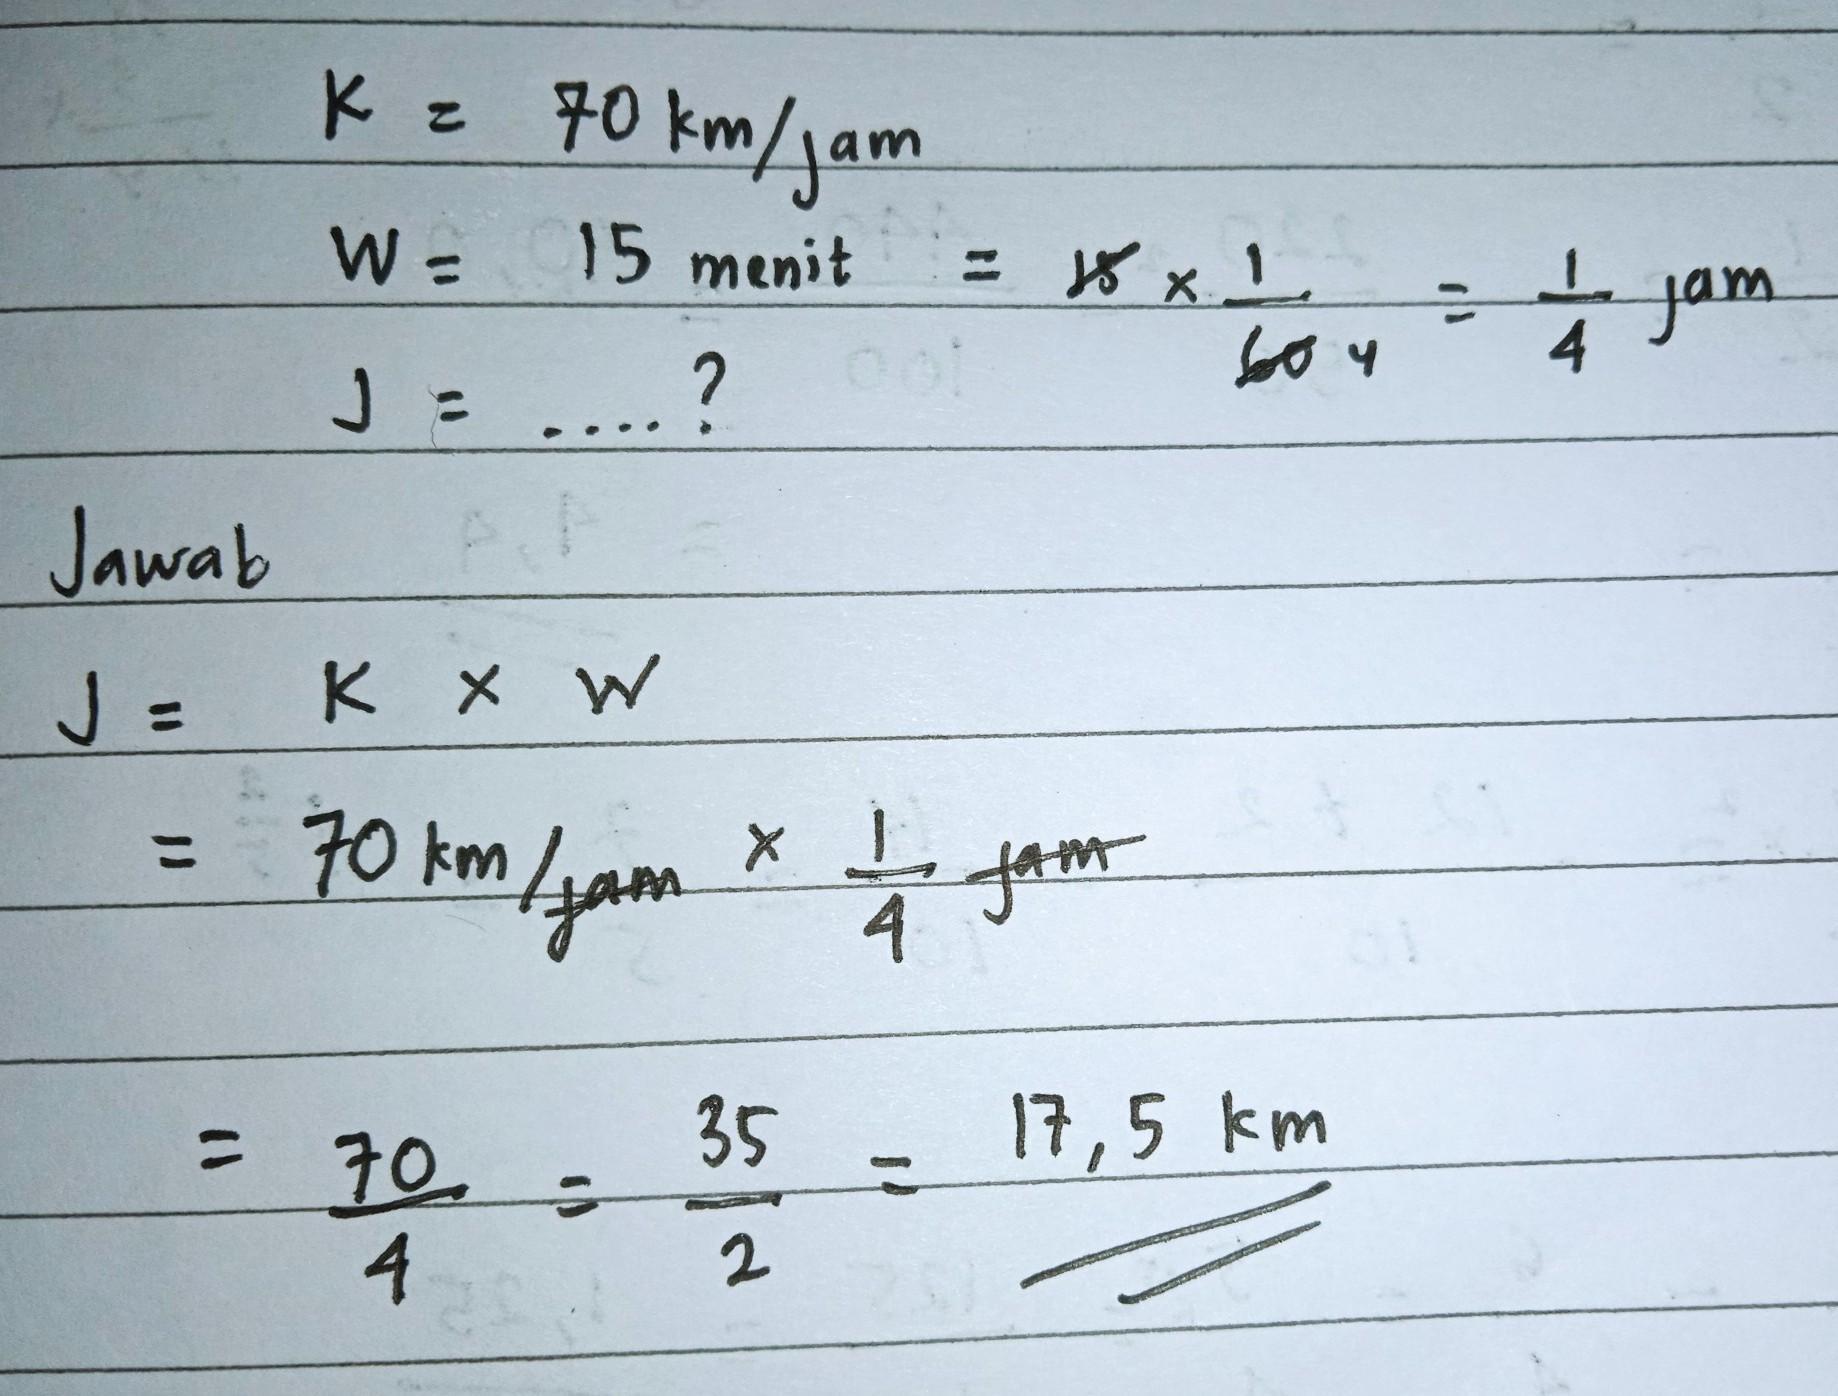 K = 70 km/jam
W = 15 menit = 15 x 1/60 4 = 1/4 jam
J = ....?
Jawab
J = K x W
= 70 km/jam x 1/4 jam
= 70/4 = 35/2 = 17,5 km